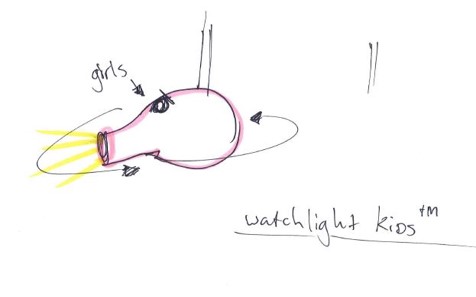 girls
watchlight kids™